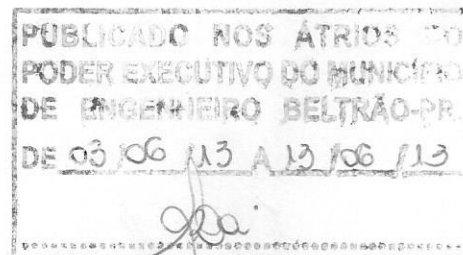 PUBLICADO NOS ÁTRIOS DO
PODER EXECUTIVO DO MUNICÍPIO
DE ENGENHEIRO BELTRÃO-PR.
DE 03/06/13 A 13/06/13